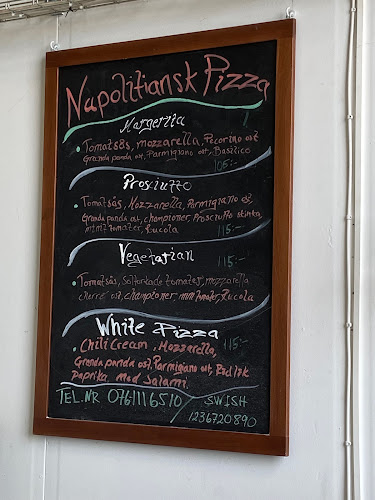 Napolitiansk Pizza
Margerita
Tomatsås, mozzarella, Pecorino ost
Granda panda ost, Parmigiano ost, Basilico
105:-
Prosciutto
Tomatsås, Mozzarella, Parmigiano ost,
Granda panda ost, championer, Prosciutto skinka,
mini tomater, Rucola 115:-
Vegetarian 115:-
Tomatsås, Soltorkade tomater, mozzarella
cherré ost, championer mini tomater, Rucola
White Pizza
Chili Cream, Mozzarella, 115:-
Granda panda ost, Parmigiano ost, Rödlök
Paprika Med Salami.
TEL.NR 0761116510
SWISH
1236720890